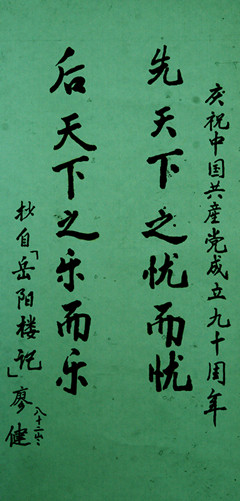 庆祝中国共産党成立九十周年
先天下之忧而忧
后天下之乐而乐
抄自「岳阳楼记」廖健